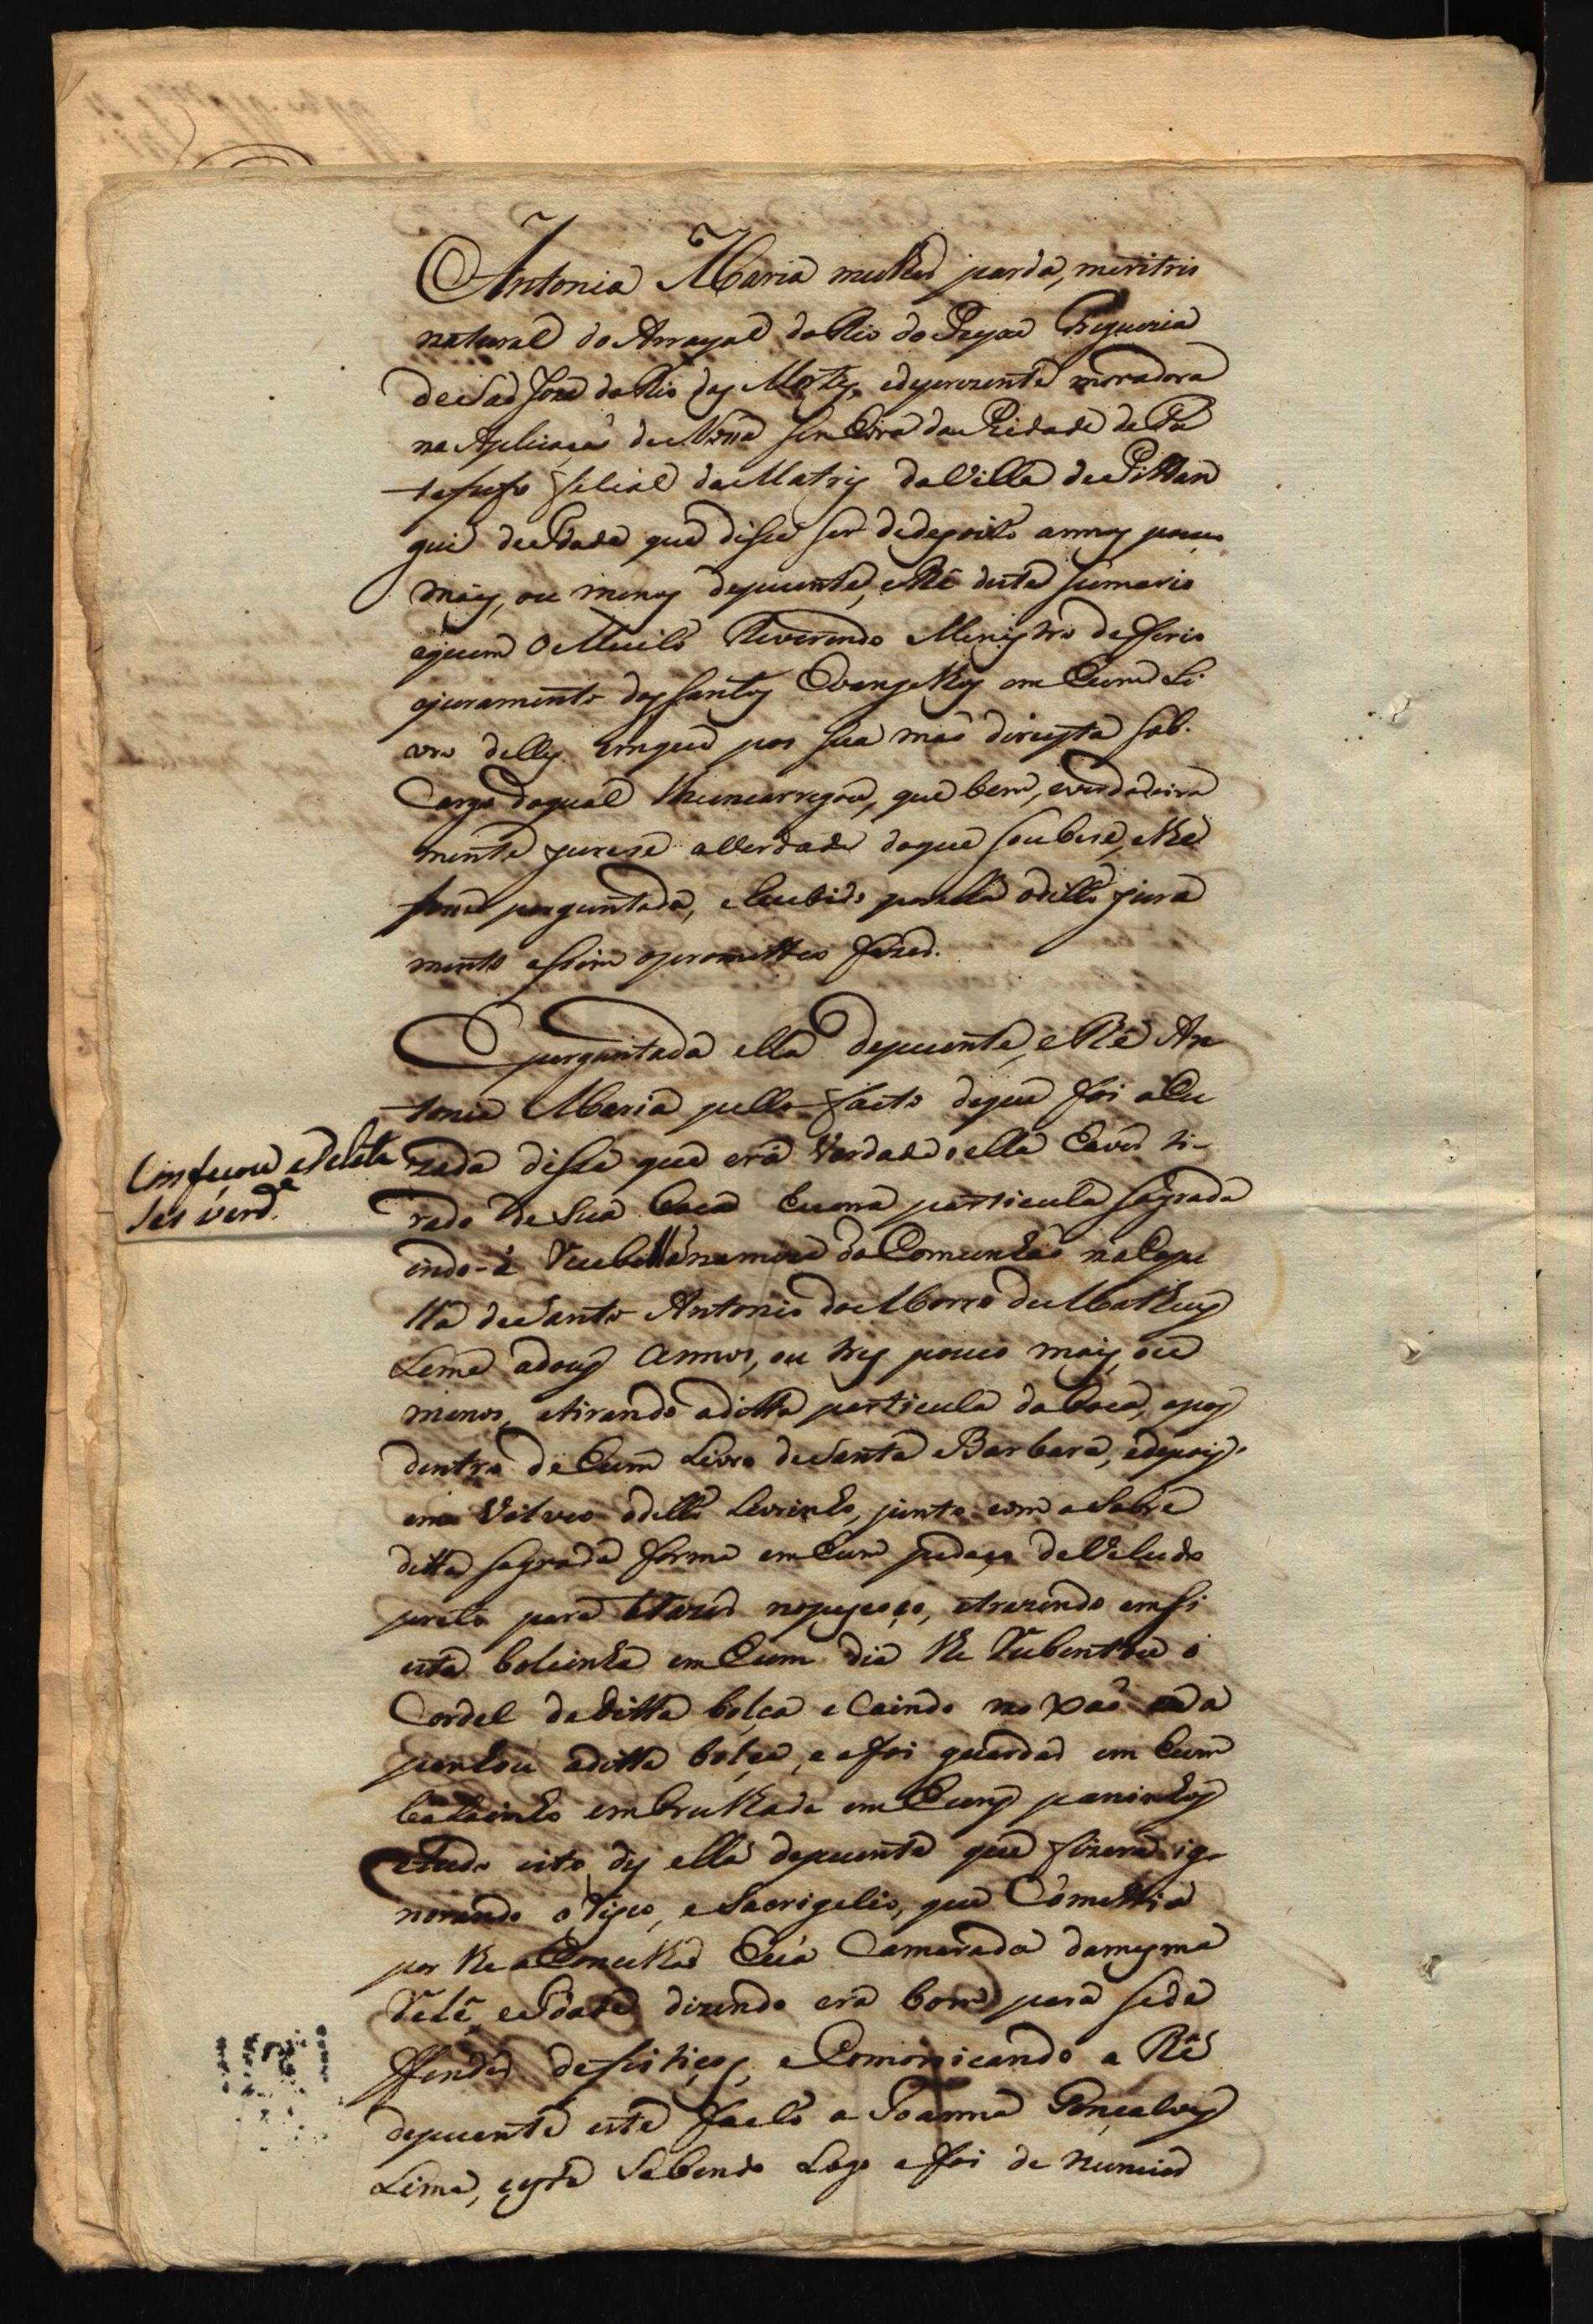 Antonia Maria mulher parda, meritris
natural do Arrayal do Rio do Peyxe Freguezia
de Saó Joze do Rio das Mortes, e de prezente moradora
na Aplicaçaó de Nossa Senhora da Piedade do Pa
tafufo filial da Matris da Villa de Pittan
gui de Idade que disse ser de dezoito annos pouco
mais, ou menos depuente, e Ré deste sumario
a quem o Muito Reverendo Menistro deferio
o juramento dos Santos Evangelhos em hum Li
vro delles em que pos sua maó direyta sob.
Cargo do qual lhe encarregou, que bem, e verdadeira
mente jurase a Verdade do que soubese, e lhe
fose perguntada, e recebido por ella o ditto jura
mento assim o prometteo fazer.
E perguntada ella depuente, e Ré An
tonia Maria pello facto de que foi acu
zada disse que era verdade ella haver ti-
rado de sua boca huma particula sagrada
indo-a recebella na meza da Comunhaó na Cape
lla de Santo Antonio do Morro de Matheus
Leme a dous annos, ou tres pouco mais, ou
menos, e tirando a ditta particula da boca, a pos
dentro de hum Livro de Santa Barbara, e depois
em volveo o ditto Livrinho, junto com a Sobre
ditta sagrada forma em hum pedaço de Veludo
preto para o trazer no pescoço, e trazendo em si
esta bolcinha em hum dia lhe rebentou o
Cordel da ditta bolça e Caindo no xaó a a
panhou a ditta bolça, e a foi guardar em hum
balainho embrulhada em huns paninhos
e tudo isto dis ella depuente que fizera ig-
norando o dezaso, e Sacrigelio, que Comettia
por lhe aConcelhar huã Camarada da mesma
Relê, e Idade dizendo era bom para se de
ffender de feitiços, e Comonicando a Ré
depuente este facto a Joanna Gonçalves
Lima, esta Sabendo Logo a foi de nunciar
Confessou o delito
ser verd.e